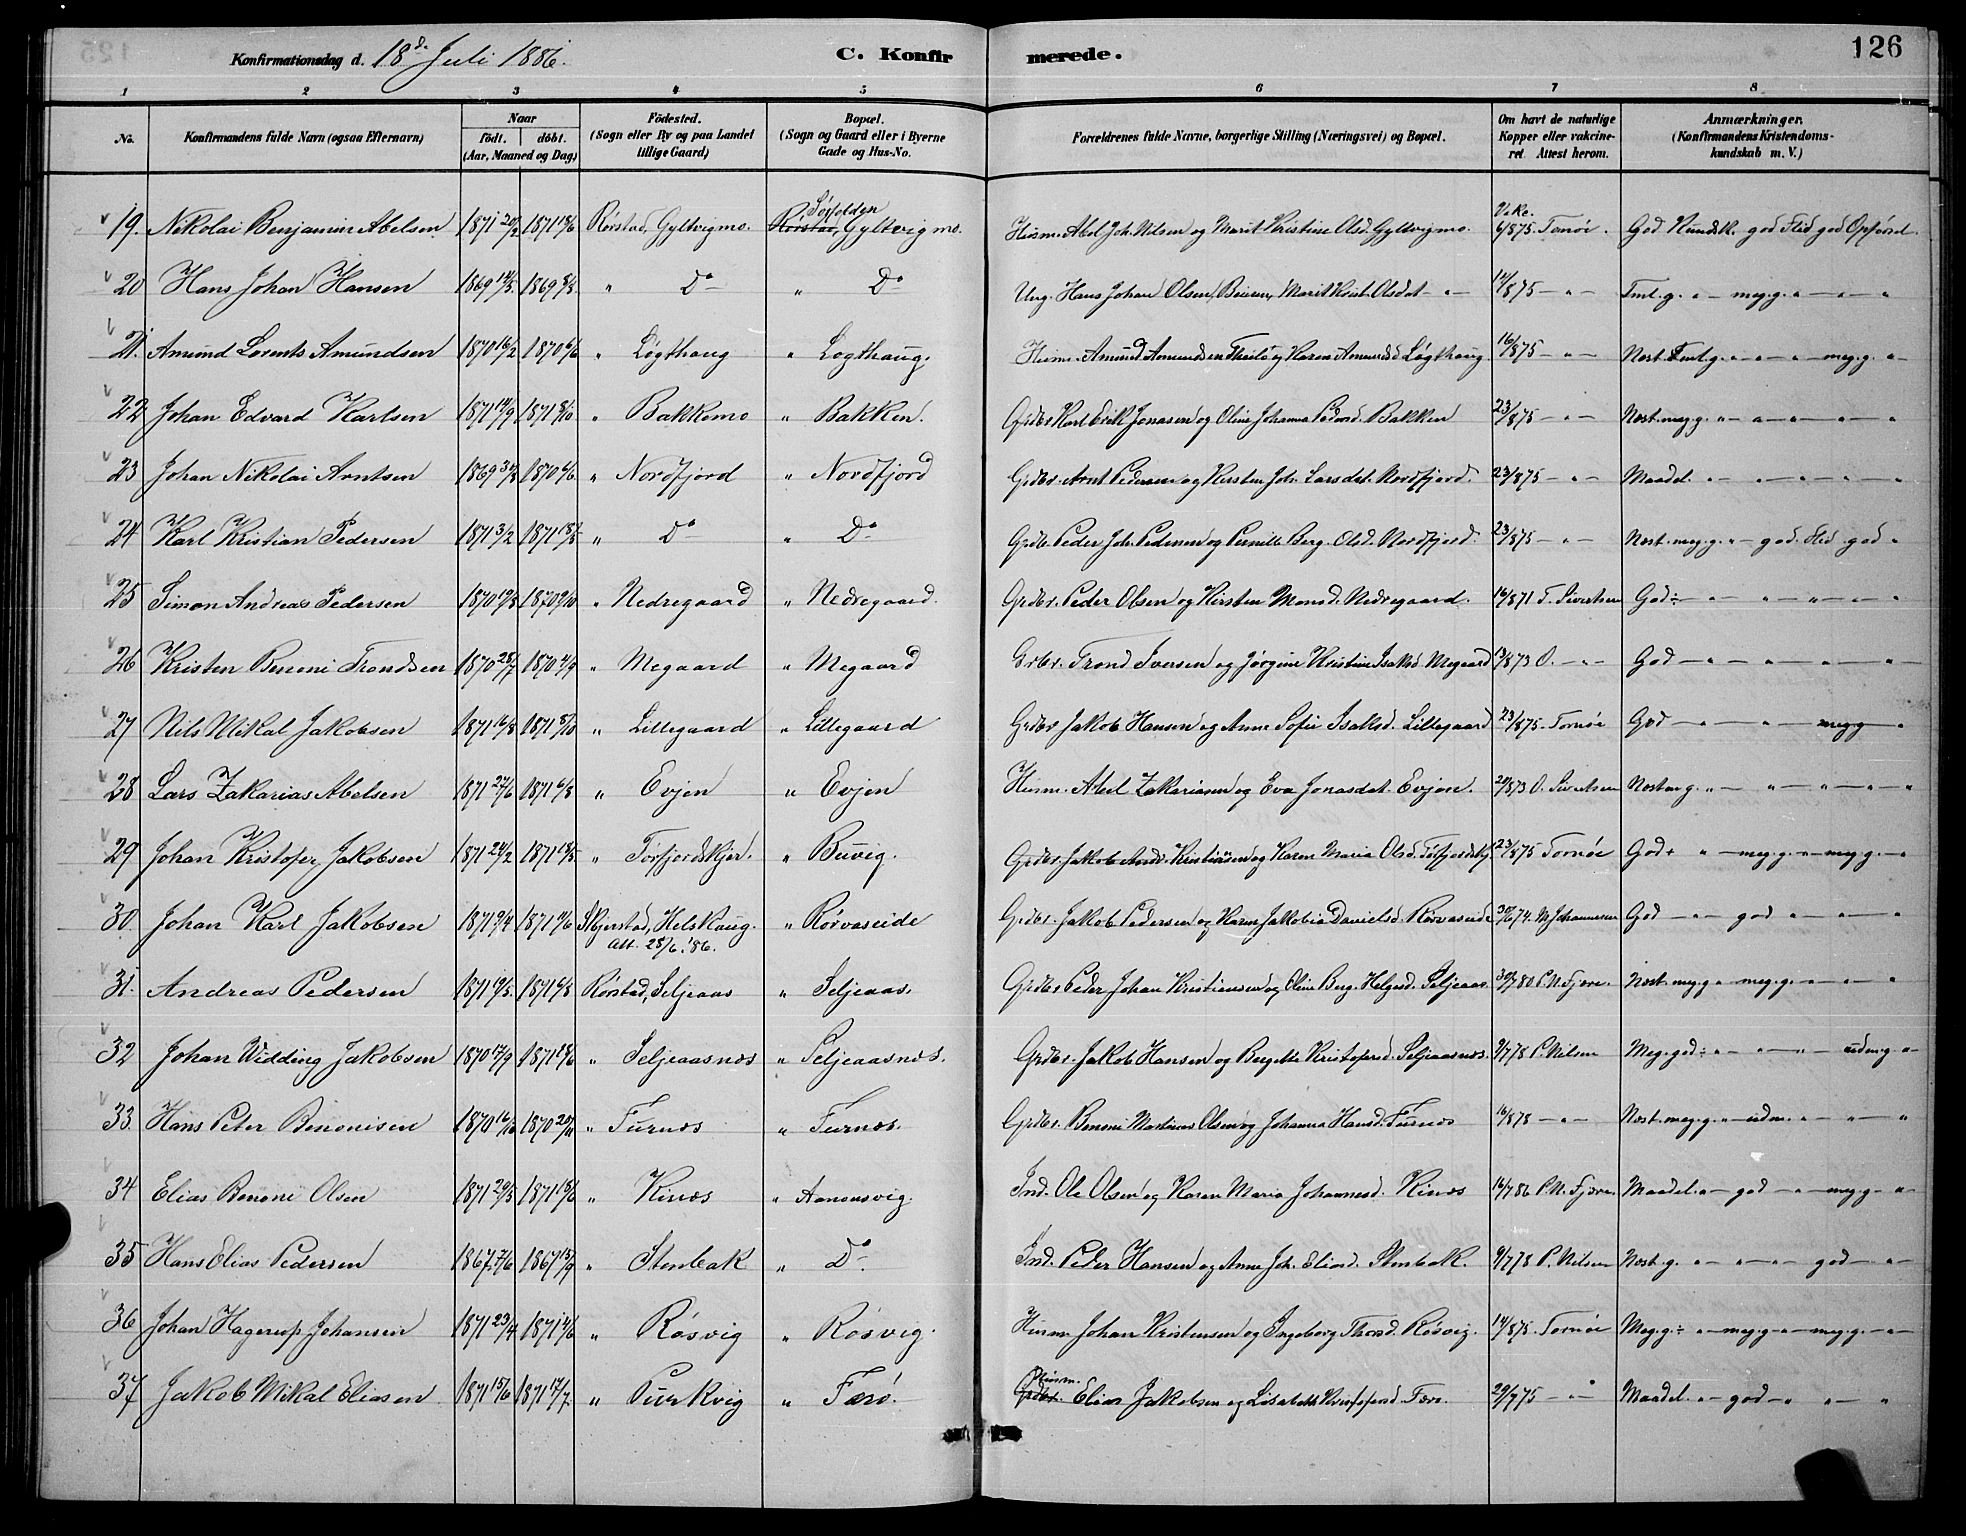 Konfirmationsdag d. 18de Juli 1886. C. Konfirmerede. 126
1 2 3 4 5 6 7 8
No. Konfirmandens fulde Navn (ogsaa Efternavn) Naar födt. döbt. (Aar, Maaned og Dag) Födested. (Sogn eller By og paa Landet tillige Gaard) Bopæl. (Sogn og Gaard eller i Byerne Gade og Hus-No. Forældrenes fulde Navne, borgerlige Stilling (Næringsvei) og Bopæl. Om havt de naturlige Kopper eller vakcineret. Attest herom. Anmærkninger. (Konfirmandens Kristendomskundskab m. V.)
19. Nikolai Benjamin Abelsen 1871 20/2 1871 18/6 Rørstad, Gyltvigmo. Rørstad, Sørfolden Gyltvigmo. Husm. Abel Joh. Nilsen og Marit Kristine Olsd. Gyltvigmo. Vakc. 6/875 Tornöe. God Kundsk. god Flid god Opförsel
20 Hans Johan Hansen 1869 " Do " Do Ung. Hans Johan Olsen, Beiern, Marit Krist. Olsdat - " - /875 - " - Tml. g. " - meg. g. " - " - "
21. Amund Lorents Amundsen 1870 16/2 1870 6/6 " Løgthaug " Løgthaug. Husm. Amund Amundsen og Karen Amundsd Løgthaug. 16/875 - " - Nost. Tml. g. " - " - " - meg. g. " -
22 Johan Edvard Karlsen 1871 14/9 1871 8/10 " Bakkemo " Bakken. Grdbr. Karl Erik Jonasen og Oline Johanna Pedersd. Bakken 23/875 - " - Nost. meg. g. " - " - " - " - "
23 Johan Nikolai Arntsen 1869 1870 " Nordfjord " Nordfjord Grdbr. Arnt Pedersen og Kirsten Joh. Larsdat. Nordfjord. 23/875 - " - Maadel. " - " - " - " - "
24 Karl Kristian Pedersen 1871 3/2 1871 " Do " Do Grdb. Peder Joh. Pedersen og Pernille Berg. Olsd. Nordfjord. 23/875 - " - Nost. meg. g. " - god. Flid god "
25 Simon Andreas Pedersen 1870 1870 " Nedregaard " Nedregaard. Grdbr. Peder Olsen og Kirsten Monsd. Nedregaard. 16/871 T. Sivertsen God÷ - " - " - " - " - "
26 Kristen Benoni Trondsen 1870 28/7 1870 " Megaard " Megaard Grbr. Trond Iversen og Jörgine Kristine Isaksd Megaard 13/873 O. - " - God - " - " - " - "
27 Nils Mikal Jakobsen 1871 16/8 1871 8/10 " Lillegaard " Lillegaard Grdbr. Jakob Hansen og Anne Sofie Isaksd. Lillegaard 23/875 Tornöe God - " - " - meg g - "
28 Lars Zakarias Abelsen 1871 27/6 1871 6/8 " Evjen " Evjen Husm. Abel Zakariasen og Eva Jonasdat. Evjen. 20/873 O. Sivertsen Nost. g. " - " - " - " - "
29 Johan Kristofer Jakobsen 1871 24/2 1871 18/5 " Torfjordskjer. " Buvig. Grdbr. Jakob Andr. Kristiansen og Karen Maria Olsd. 23/875 Tornöe God+ " - meg. g. " - meg. g. - "
30. Johan Karl Jakobsen 1871 9/4 1871 Skjerstad, Helskaug. att. 28/6 '86. " Rørvaseide Grdbr. Jakob Pedersen og Karen Jakobia Danielsd. Rørvaseide 30/674. M. Johannesen God - " - god - " - " - "
31. Andreas Pedersen 1871 1871 6/8 Rørstad, Seljeaas " Seljeaas. Grdbr. Peder Johan Kristiansen og Oline Berg. Helgesd. Seljeaas 30/780 P. N. Fjære. Nost. meg g " meg. g. " - " - "
32 Johan Widding Jakobsen 1870 17/9 1871 18/6 " Seljeaasnæs " Seljeaasnæs. Grdbr. Jakob Hansen og Bergitte Kristofersd Seljeaasnæs. 9/778 P. Nilsen Meg. god÷ " - " - " - udm. g " -
33. Hans Peter Benonisen 1870 16/10 1870 20/11 " Furnæs " Furnæs. Grdbr. Benoni Martinus Olsen og Johanna Hansd. Furnæs 16/878 - " - Nost. meg. g. " - udm. " - " - "
34 Elias Benoni Olsen 1871 29/3 1871 18/6 " Kinæs " Aanonsvig. Ind. Ole Olsen og Karen Maria Johannesd. Kinæs 16/786 P. N. Fjære. Maadel. " - god - " - meg. g. - " -
35 Hans Elias Pedersen 1867 1867 " Stenbak " Do Ind. Peder Hansen og Anne Joh. Eliasd. Stenbak. 9/778 P. Nilsen Nost. g. " - " - " - god - " -
36 Johan Hagerup Johansen 1871 23/4 1871 4/6 " Røsvig " Røsvig. Husm. Johan Kristensen og Ingeborg Thorsd. Røsvig. 14/875. Tornöe Meg. g.÷ " - meg. g - " - meg. g. - " -
37 Jakob Mikal Eliasen 1871 15/6 1871 17/7. " Purkvig " Færö. Grdbr. Husm. Elias Jakobsen og Lisabeth Kristofersd Færö. 29/775 - " - Maadel. " - god - " - " - "